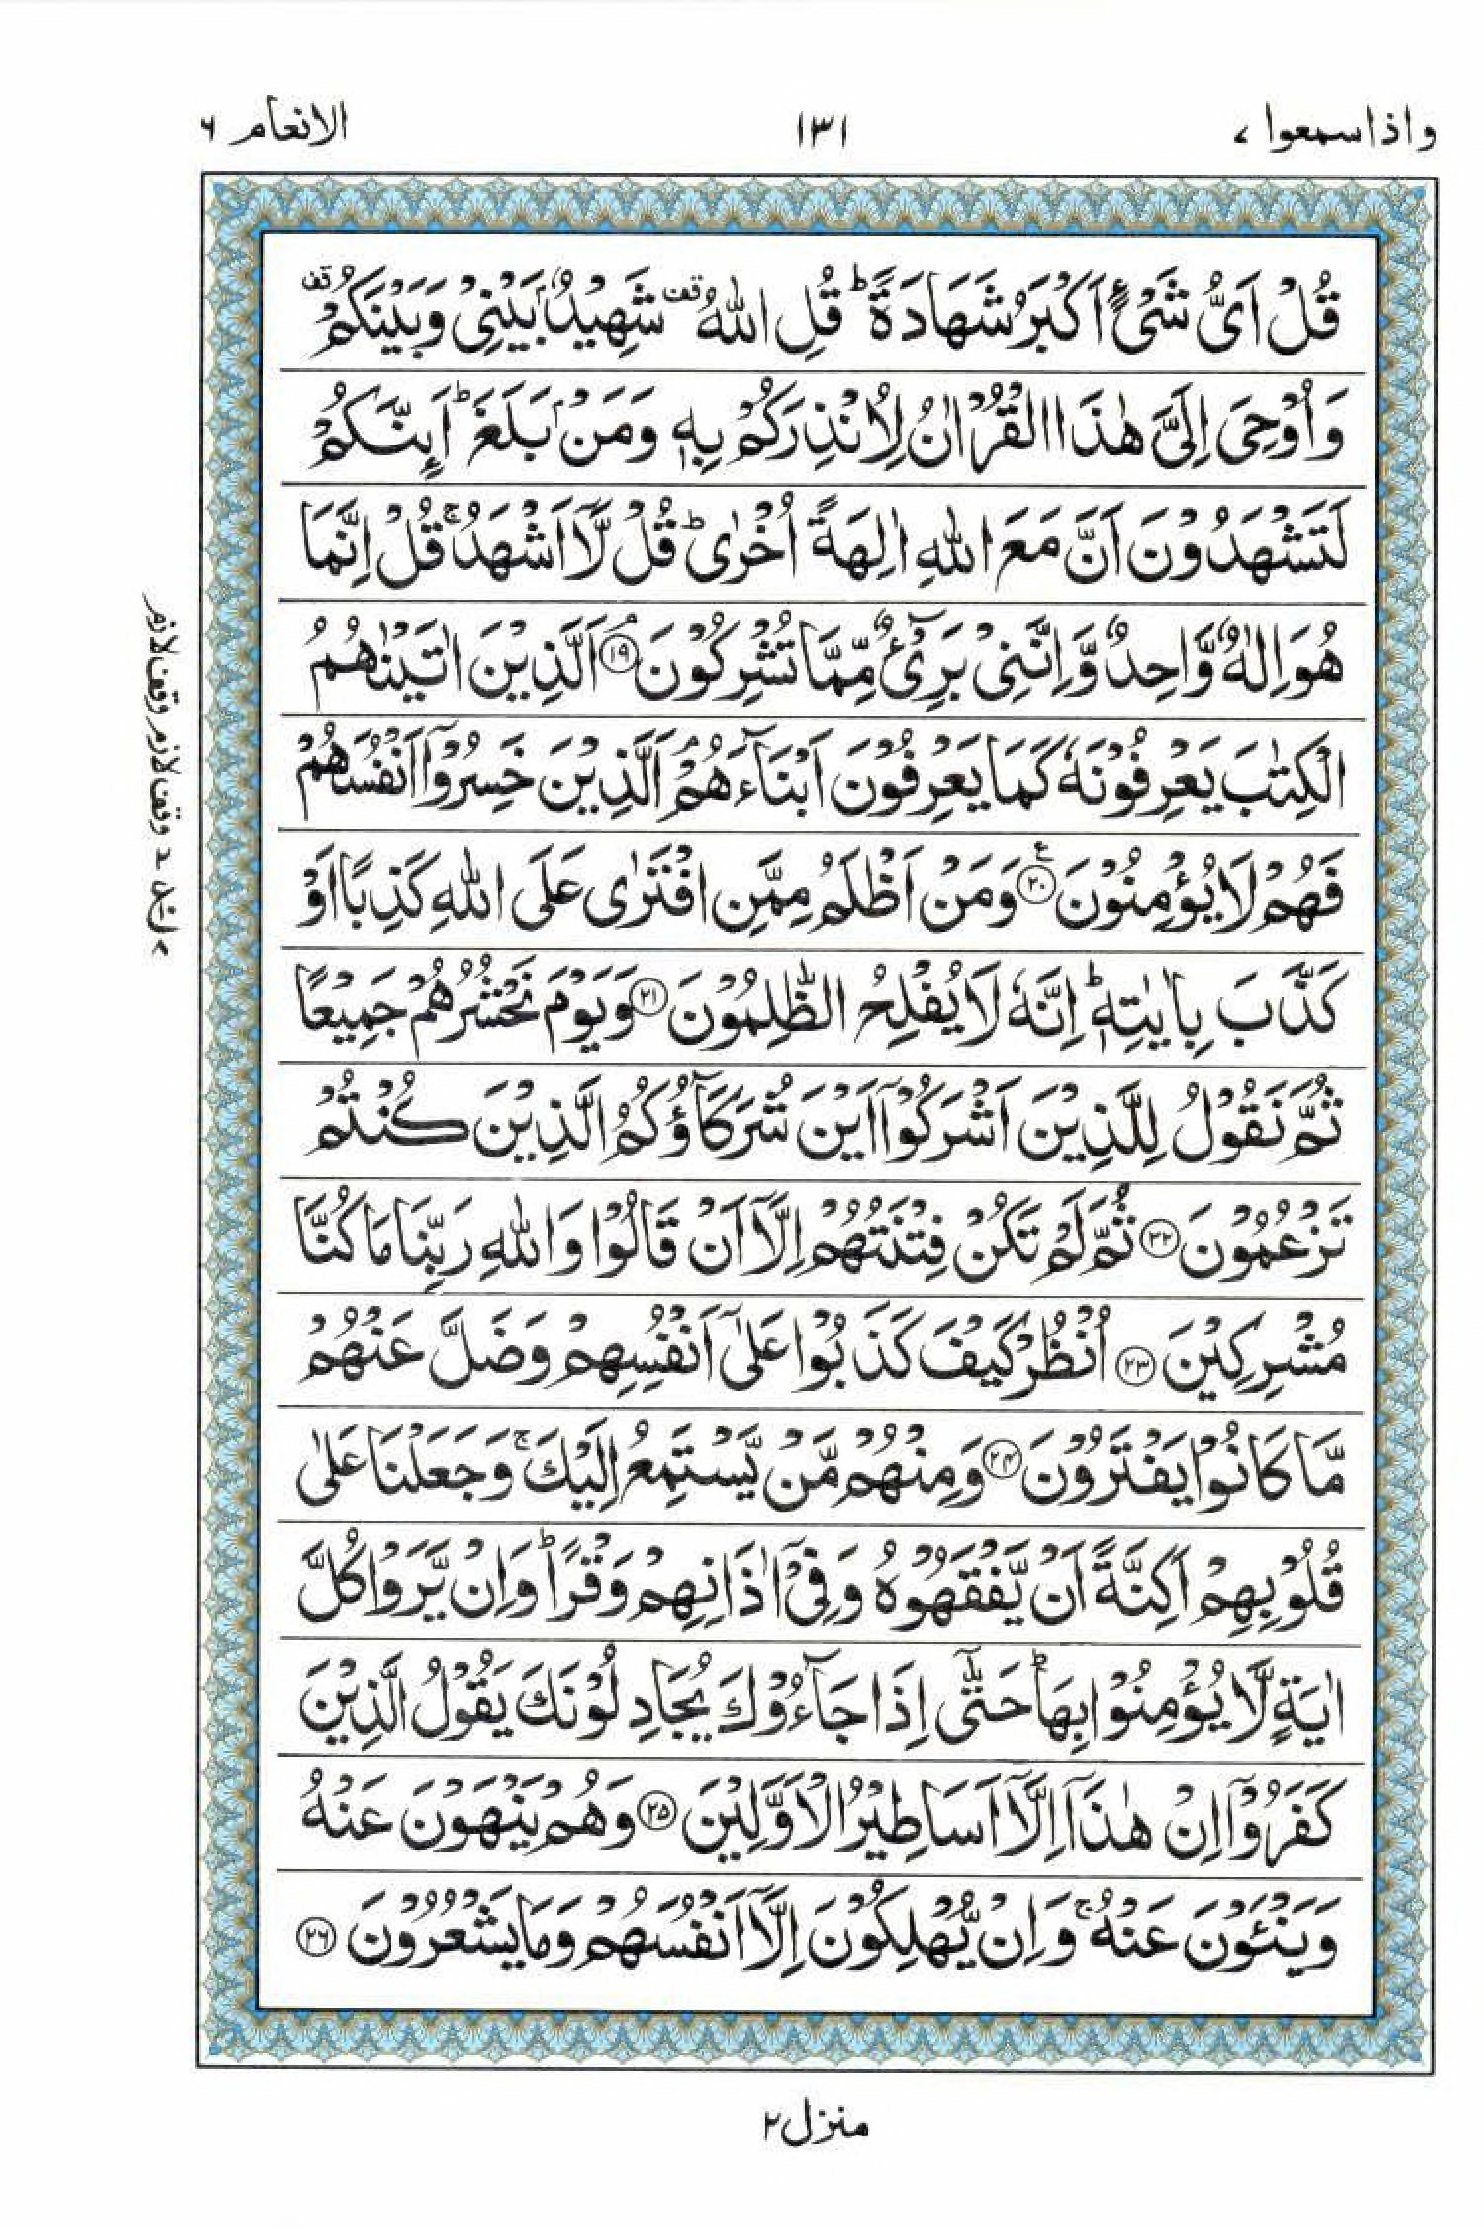 واذاسمعوا ٧
١٣١
الانعام ٦
قُلْ اَیُّ شَیْءٍ اَكْبَرُ شَهَادَةً ؕ قُلِ اللّٰهُ ۫ۙ شَهِیْدٌۢ بَیْنِیْ وَبَیْنَكُمْ ۫
وَاُوْحِیَ اِلَیَّ هٰذَا الْقُرْاٰنُ لِاُنْذِرَكُمْ بِهٖ وَمَنْۢ بَلَغَ ؕ اَىِٕنَّكُمْ
لَتَشْهَدُوْنَ اَنَّ مَعَ اللّٰهِ اٰلِهَةً اُخْرٰی ؕ قُلْ لَّاۤ اَشْهَدُ ۚ قُلْ اِنَّمَا
هُوَ اِلٰهٌ وَّاحِدٌ وَّاِنَّنِیْ بَرِیْٓءٌ مِّمَّا تُشْرِكُوْنَ ۘ ﴿١٩﴾ اَلَّذِیْنَ اٰتَیْنٰهُمُ
الْكِتٰبَ یَعْرِفُوْنَهٗ كَمَا یَعْرِفُوْنَ اَبْنَآءَهُمْ ۘ اَلَّذِیْنَ خَسِرُوْۤا اَنْفُسَهُمْ
فَهُمْ لَا یُؤْمِنُوْنَ ﴿٢٠﴾ وَمَنْ اَظْلَمُ مِمَّنِ افْتَرٰی عَلَی اللّٰهِ كَذِبًا اَوْ
كَذَّبَ بِاٰیٰتِهٖ ؕ اِنَّهٗ لَا یُفْلِحُ الظّٰلِمُوْنَ ﴿٢١﴾ وَیَوْمَ نَحْشُرُهُمْ جَمِیْعًا
ثُمَّ نَقُوْلُ لِلَّذِیْنَ اَشْرَكُوْۤا اَیْنَ شُرَكَآؤُكُمُ الَّذِیْنَ كُنْتُمْ
تَزْعُمُوْنَ ﴿٢٢﴾ ثُمَّ لَمْ تَكُنْ فِتْنَتُهُمْ اِلَّاۤ اَنْ قَالُوْا وَاللّٰهِ رَبِّنَا مَا كُنَّا
مُشْرِكِیْنَ ﴿٢٣﴾ اُنْظُرْ كَیْفَ كَذَبُوْا عَلٰۤی اَنْفُسِهِمْ وَضَلَّ عَنْهُمْ
مَّا كَانُوْا یَفْتَرُوْنَ ﴿٢٤﴾ وَمِنْهُمْ مَّنْ یَّسْتَمِعُ اِلَیْكَ ۚ وَجَعَلْنَا عَلٰی
قُلُوْبِهِمْ اَكِنَّةً اَنْ یَّفْقَهُوْهُ وَفِیْۤ اٰذَانِهِمْ وَقْرًا ؕ وَاِنْ یَّرَوْا كُلَّ
اٰیَةٍ لَّا یُؤْمِنُوْا بِهَا ؕ حَتّٰۤی اِذَا جَآءُوْكَ یُجَادِلُوْنَكَ یَقُوْلُ الَّذِیْنَ
كَفَرُوْۤا اِنْ هٰذَاۤ اِلَّاۤ اَسَاطِیْرُ الْاَوَّلِیْنَ ﴿٢٥﴾ وَهُمْ یَنْهَوْنَ عَنْهُ
وَیَنْـَٔوْنَ عَنْهُ ۚ وَاِنْ یُّهْلِكُوْنَ اِلَّاۤ اَنْفُسَهُمْ وَمَا یَشْعُرُوْنَ ﴿٢٦﴾
وقف لازم وقف لازم
منزل ٢